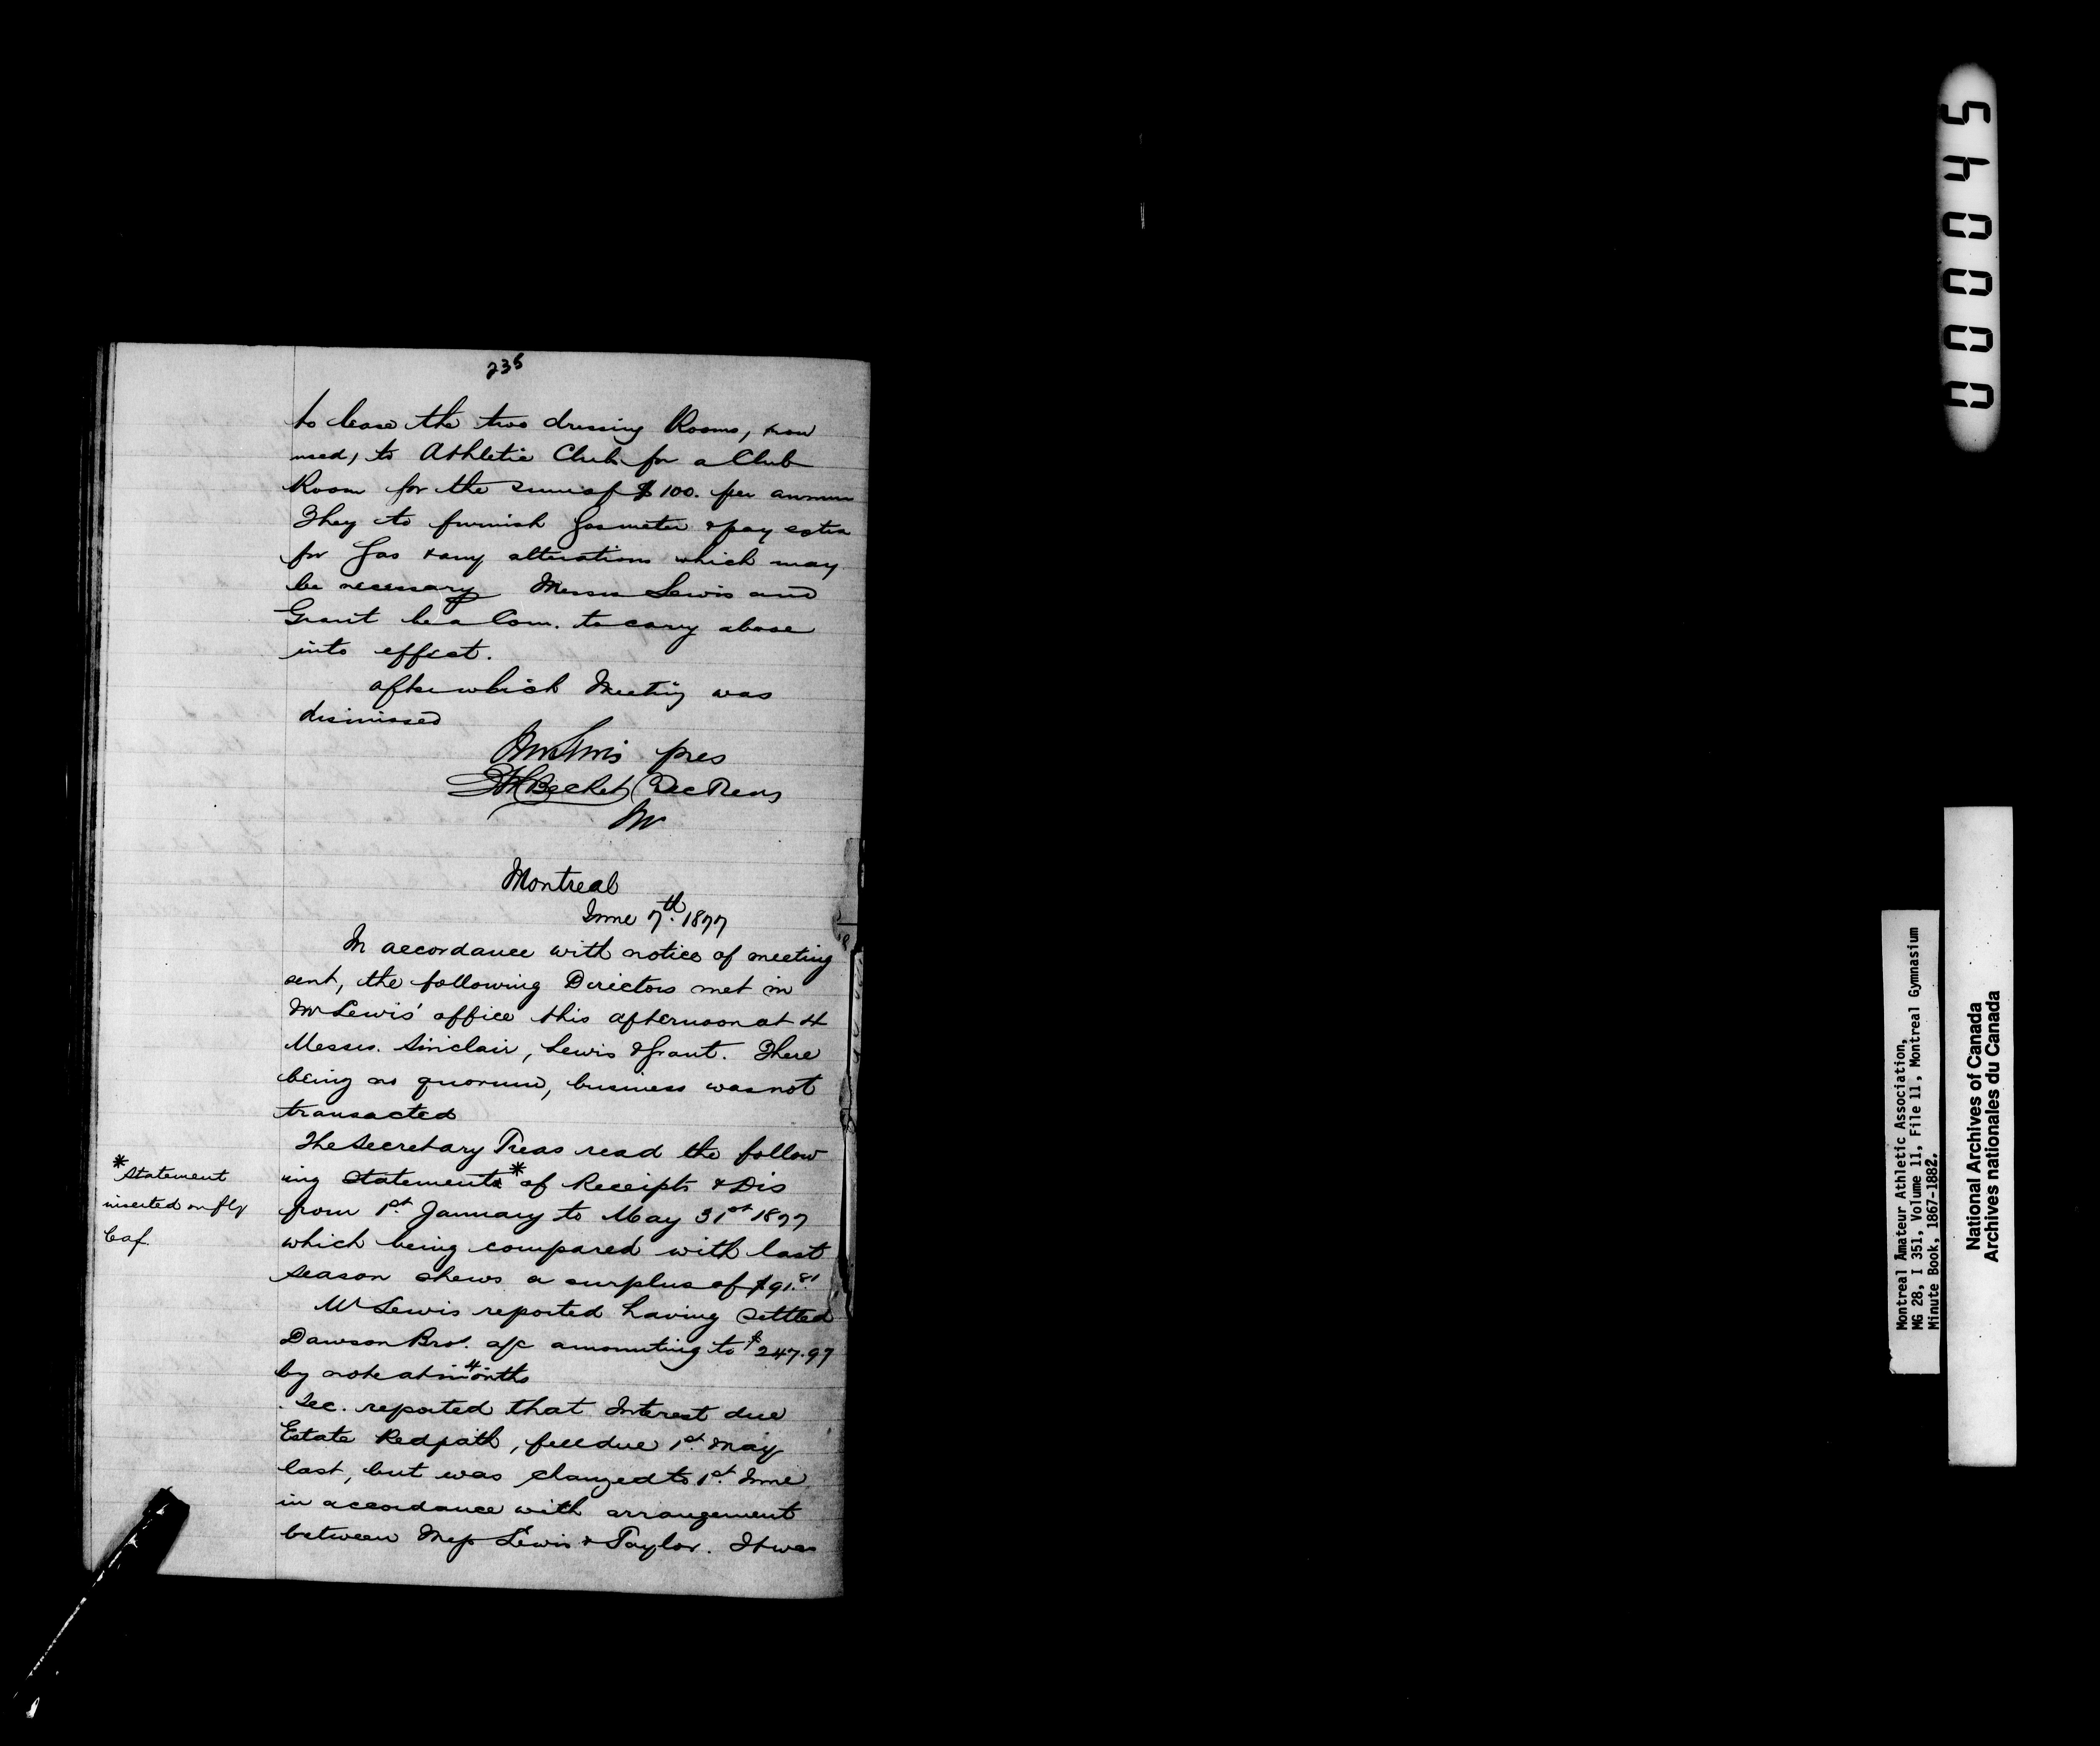 235
to lease the two dressing Rooms, now
used, to Athletic Club for a Club
Room for the sum of $100. per annum
They to furnish Gasmeter & pay extra
for Gas & any alterations which may
be necessary Messrs Lewis and
Grant be a Com. to carry above
into effect.
after which Meeting was
dismissed
pres
Becket Sec Treas
Montreal
June 7th. 1877
In accordance with notice of meeting
sent, the following Directors met in
Mr Lewis' office this afternoon at 4
Messrs. Sinclair, Lewis & Grant. There
being no quorum, business was not
transacted
The Secretary Treas read the follow
ing statements* of Receipts & Dis
from 1st. January to May 31st 1877
which being compared with last
season shews a surplus of $91.81
Mr Lewis reported having settled
Dawson Bros. a/c amounting to $247.97
by note at 4 months
Sec. reported that Interest due
Estate Redpath, fell due 1st. May
last, but was changed to 1st. June
in accordance with arrangement
between Mess Lewis & Taylor. It was
* Statement
inserted on fly
leaf.
000045
Montreal Amateur Athletic Association,
MG 28, I 351, Volume 11, File 11, Montreal Gymnasium
Minute Book, 1867-1882.
National Archives of Canada
Archives nationales du Canada